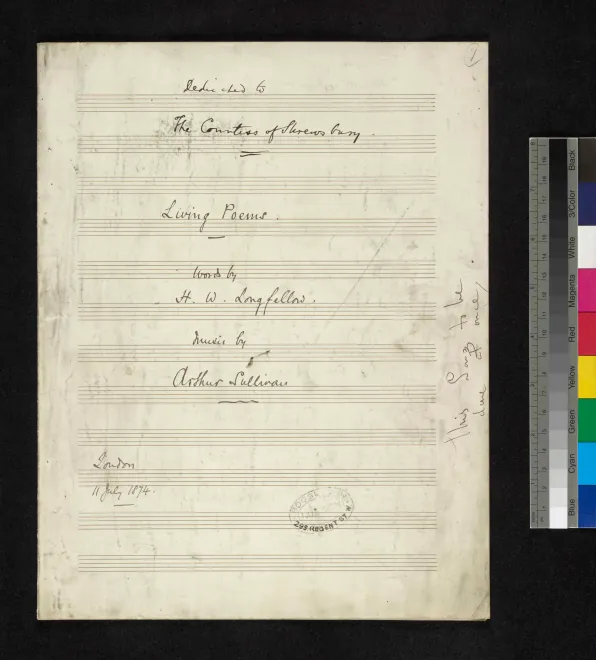 Dedicated to
The Countess of Shrewsbury.
Living Poems.
Words by
H. W. Longfellow.
Music by
Arthur Sullivan
London
11 July 1874.
This Song to be
done at once,
295 REGENT ST
Black
3/Color
White
Magenta
Red
Yellow
Green
Cyan
Blue